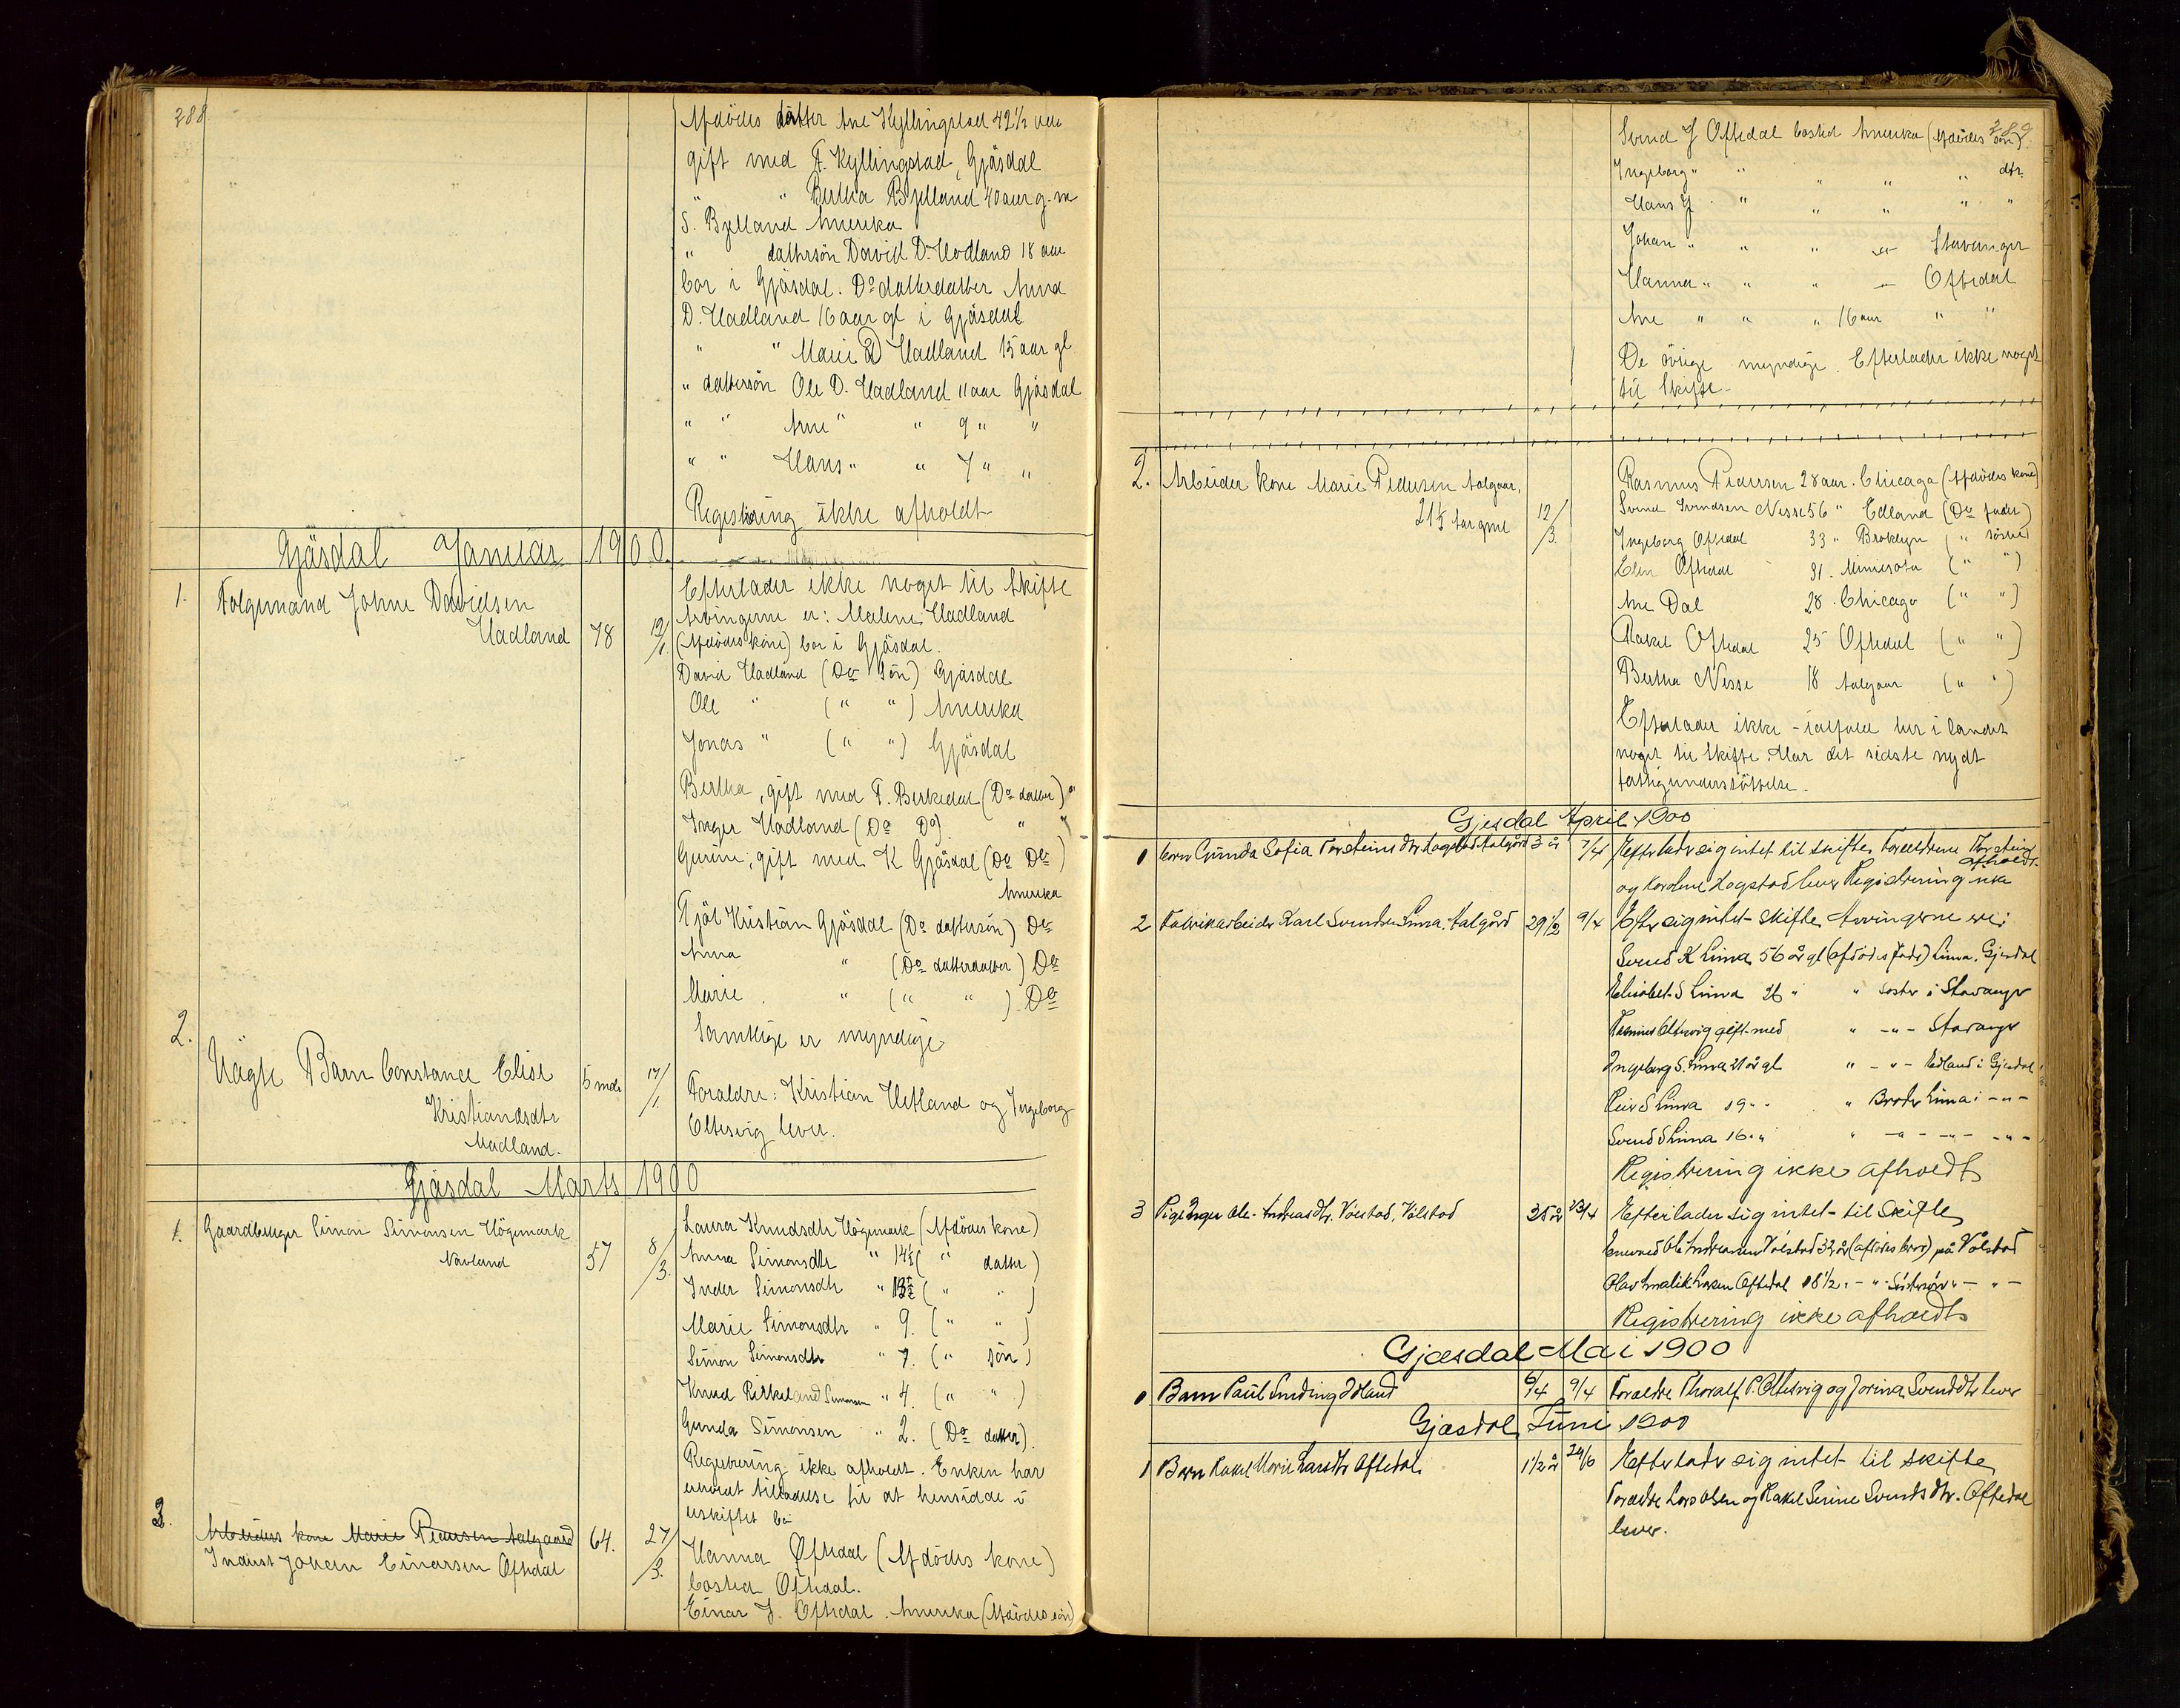 288
Afdödes datter Ane Kyllingstad 42½ aar
gift med T. Kyllingstad, Gjäsdal
" " Bertha Bjelland 40 aar g. m
S. Bjelland Amerika
" dattersön David D. Hadland 18 aar
bor i Gjäsdal. Do datterdatter Anna
D. Hadland 16 aar gl i Gjäsdal
" " Marie D Hadland 15 aar gl
" dattersön Ole D. Hadland 11 aar Gjäsdal
" " Arne " " 9 " "
" " Hans " " 7 " "
Registrering ikke afholdt
Gjäsdal Januar 1900.
1. Folgemand Johne Davidsen
Hadland 78 12/1
Efterlader ikke noget til Skifte
Arvingerne er: Malene Hadland
(Afdödes kone) bor i Gjäsdal.
David Hadland (Do Sön) Gjäsdal
Ole " (" ") Amerika
Jonas " (" ") Gjäsdal
Bertha, gift med T. Birkedal (Do datter) "
Inger Hadland (Do Do) " "
Gurine, gift med K Gjäsdal (Do Do)
Amerika
Tjöl Kristian Gjäsdal (Do dattersön) Do
Anna " (Do datterdatter) Do
Marie " (" ") Do
Samtlige er myndige
2. Uägte Barn Constance Elise
Kristiansdtr
Madland.
5 mdr 17/1.
Foraldre: Kristian Hetland og Ingeborg
Oltesvig lever.
Gjäsdal Marts 1900
1. Gaardbruger Simon Simonsen Högemark
Navland 57 8/3.
Laura Knudsdtr Högemark (Afdödes kone)
Anna Simonsdtr " 14½ (" datter)
Inder Simonsdtr " 13½ (" ")
Marie Simonsdtr " 9. (" ")
Simon Simonsdtr " 7. (" sön)
Knud Rikkeland Simonsen " 4. (" ")
Gunda Simonsen " 2. (Do datter).
Registrering ikke afholdt. Enken har
erhvert tilladelse til at hensidde i
uskiftet bo
3. Arbeiders kone Marie Pedersen Aalgaard
Inderst Johan Einarsen Oftedal
64. 27/3.
Hanna Oftedal (Afdödes kone)
bosted Oftedal.
Einar J. Oftedal. Amerika (Afdödes sön)
289
Svend J Oftedal bosted Amerika (Afdödes sön)
Ingeborg " " " " " dtr.
Hans J " " " " "
Johan " " " " Stavanger
Hanna " " " " Oftedal
Ane " " " 16 aar " "
De övrige myndige. Efterlader ikke noget
til Skifte.
2. Arbeider kone Marie Pedersen Aalgaar,
21½ aar gml 12/3.
Rasmus Pedersen 28 aar. Chicago (Afdödes kone)
Svend Svendsen Nesse 56 " Edland (Do fader)
Ingeborg Oftedal 33 " Broklyn (" söster
Elen Oftedal 31. Minisota (" ")
Ane Dal 28. Chicago (" ")
Rakel Oftedal 25 Oftedal (" ")
Bertha Nesse 18 Aalgaar (" ")
Efterlader ikke - ialfald her i landet
noget til Skifte. Har det sidste nydt
fattigunderstöttelse.
Gjesdal April 1900
1 barn Gunda Sofia Torsteinsdtr Logstad Aalgård 3 år 7/4 Efterlader sig intet til skifte Foreldrene Torstein
og Karoline Logstad lever Registrering ikke
afholdt.
2 Fabrikarbeider Karl Svendsen Lima. Aalgård 29½ 9/4 Efter sig intet skifte Arvingerne ere:
Svend K Lima 56 år gl (afdödes Fader) Lima. Gjesdal
Elisabet S Lima 26 " " Soster i Stavanger
Rasmus Oltesvig gift med " - " - Stavanger
Ingeborg S. Lima 21 år gl " - " - Edland i Gjesdal
Peir S Lima 19 " " " Broder Lima i - " -
Svend S Lima 16 " " " - " - - " - - " -
Registrering ikke afholdt
3 Pige Inger Ole-Andreasdtr. Völstad, Völstad 35 år 23/4 Efterlader sig intet til skifte
Enevald Ole Andreasen Völstad 32 år (afdödes bror) på Völstad
Olav Amalik Larsen Oftedal 18½ " - " Söstersön " - " -
Registrering ikke afholdt
Gjæsdal Mai 1900
0 Barn Paul Sinding Idland 6/4 9/4 Foraldre Thoralf P. Oltesvig og Jorina Svendsdtr lever
Gjæsdal Juni 1900
1 Barn Rakel Marie Larsdtr Oftedal 1½ år 24/6 Efterlader sig intet til skifte
Foraldre Lars Olsen og Rakel Serine Svendsdtr. Oftedal
lever.